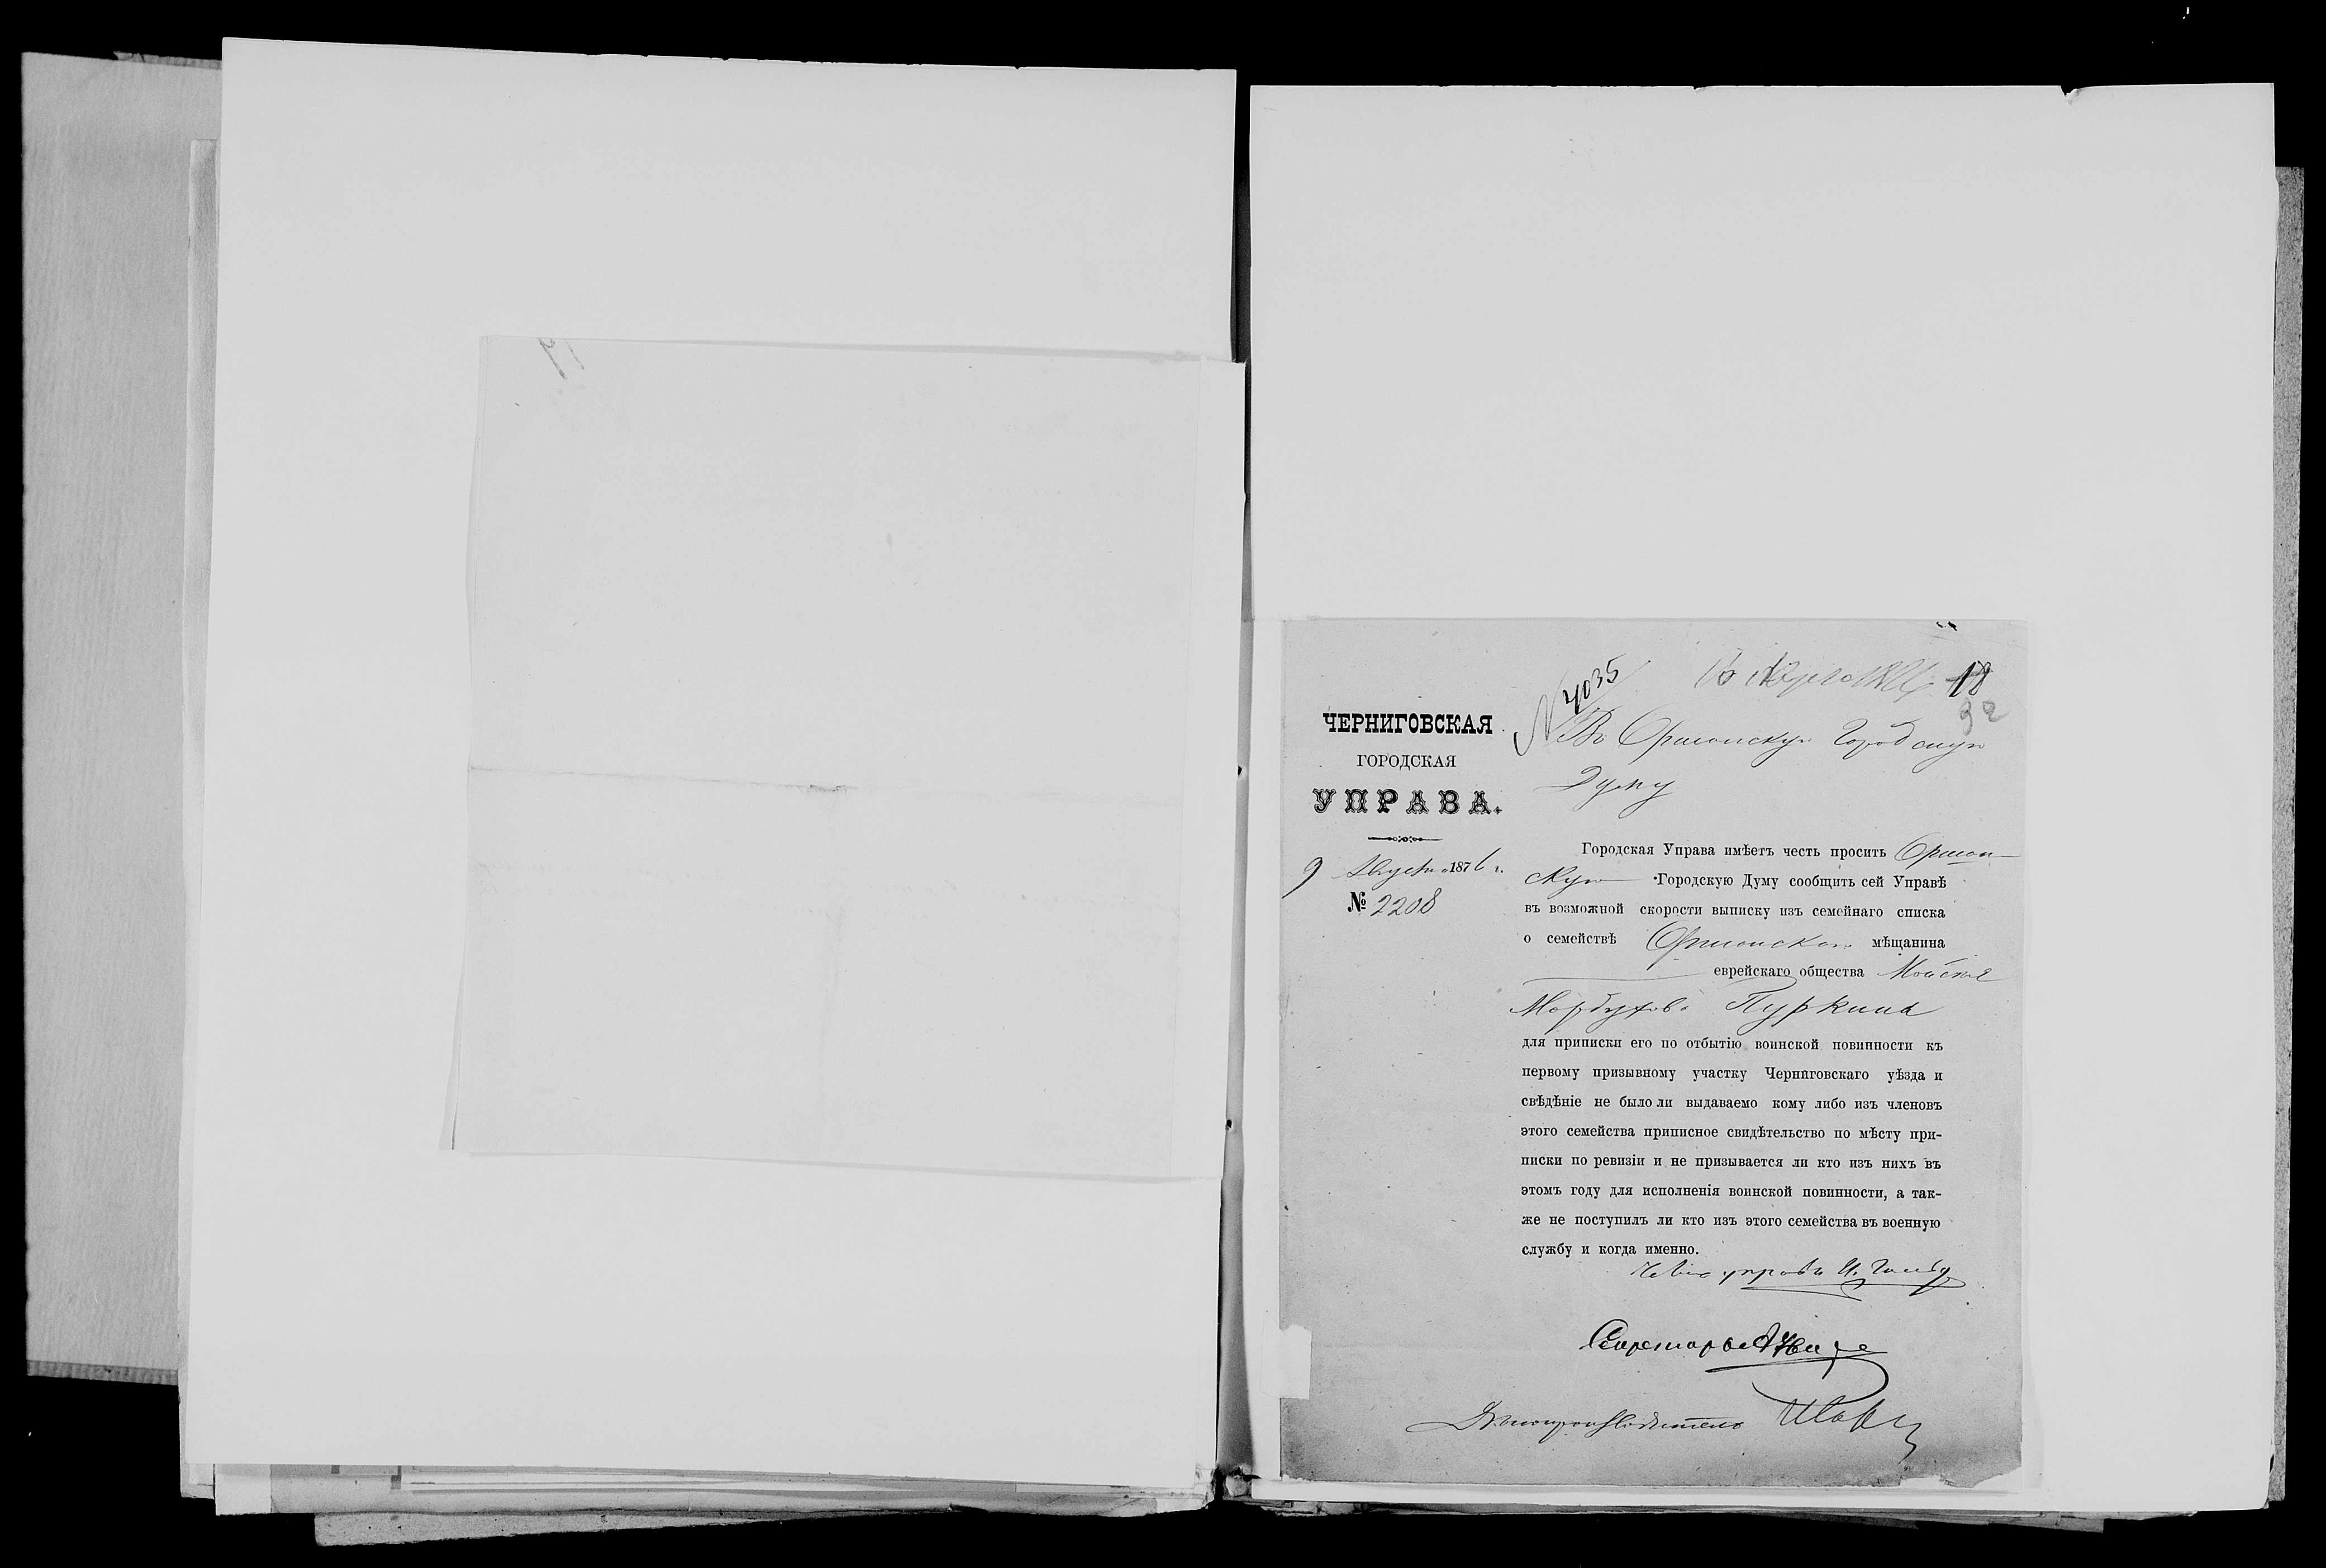 № 4035
18
92
ЧЕРНИГОВСКАЯ
ГОРОДСКАЯ
УПРАВА.
9 Августа 1876 г.
№ 2208
Въ Оршанскую Городскую
Думу
Городская Управа имѣетъ честь просить Оршан-
скую Городскую Думу сообщить сей Управѣ
въ возможной скорости выписку изъ семейнаго списка
о семействѣ Оршанскаго мѣщанина
еврейскаго общества
Мордухова Пуркина
для приписки его по отбытію воинской повинности къ
первому призывному участку Черниговскаго уѣзда и
свѣдѣніе не было ли выдаваемо кому либо изъ членовъ
этого семейства приписное свидѣтельство по мѣсту при-
писки по ревизіи и не призывается ли кто изъ нихъ въ
этомъ году для исполненія воинской повинности, а так-
же не поступилъ ли кто изъ этого семейства въ военную
службу и когда именно.
управы И.
Секретарь
Дѣлопроизводитель